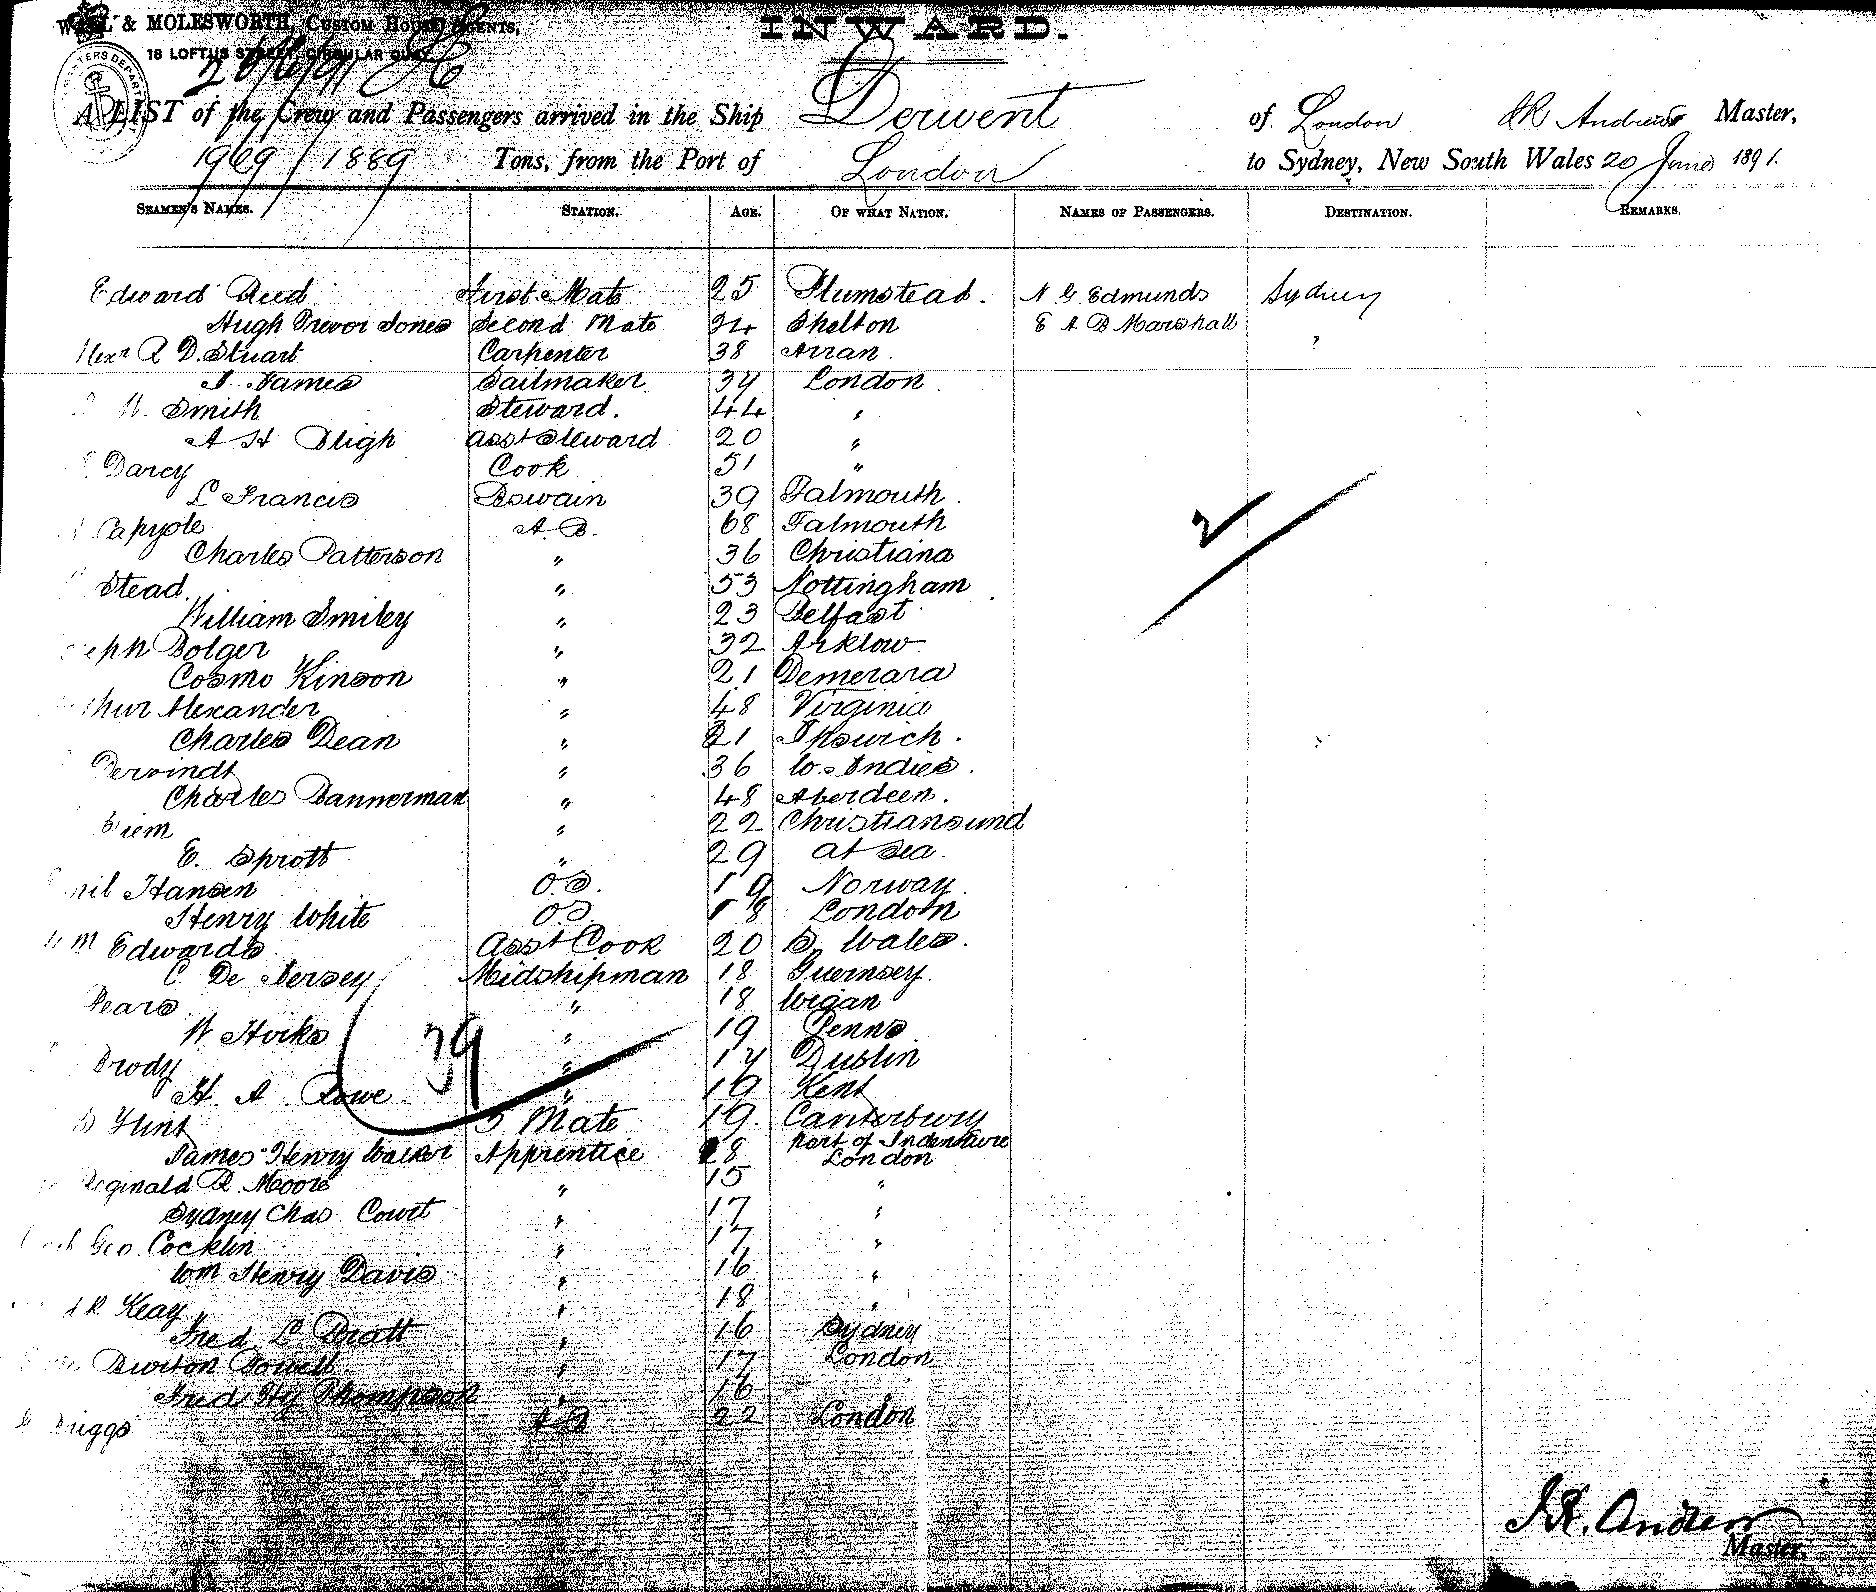 & MOLESWORTH, CUSTOM HOUSE AGENTS,
18 LOFTUS STREET, CIRCULAR QUAY
INWARD.
A LIST of the Crew and Passengers arrived in the Ship Derwent of London J R Andrews Master,
1969 / 1889 Tons, from the Port of London to Sydney, New South Wales 20 June 1891.
SEAMEN'S NAMES. STATION. AGE. OF WHAT NATION. NAMES OF PASSENGERS. DESTINATION. REMARKS.
Edward Reed First Mate 25 Plumstead. N G Edmunds Sydney
Hugh Trevor Jones Second Mate 24 Shelton E A B Marshall
Alexr R D. Stuart Carpenter 38 Arran. "
J. James Sailmaker 34 London
Smith Steward. 44 "
A H Bligh Asst Steward 20 "
Darcy Cook 51 "
L Francis Boswain 39 Falmouth.
A.B. 68 Falmouth
Charles Patterson " 36 Christiana
2
Stead. " 53 Nottingham
William Smiley " 23 Belfast
Bolger " 32 Arklow
Cosmo Kinson " 21 Demerara
Alexander " 48 Virginia
Charles Dean " 21 Ipswich.
" 36 W. Indies.
Charles Bannerman " 48 Aberdeen.
" 22 Christiansund
E. Sprott " 29 at sea.
Hansen O.S. 19 Norway.
Henry White O.S. 18 London
Wm Edwards Asst Cook 20 S. Wales.
C De Jersey Midshipman 18 Guernsey
Pears " 18 Wigan
W Hooks " 19 Penns
39
Brody " 17 Dublin
H. A. Rowe " 19 Kent
Flint 3 Mate 19 Canterbury
Port of Indenture
James Henry Walker Apprentice 18 London
Reginald R. Moore " 15 "
Sydney Chas Court " 17 "
Geo. Cocklin " 17 "
Wm Henry Davis " 16 "
Keay " 18 "
Fred L Pratt " 16 Sydney
Burton Powell " 17 London
Fred Hy Thompson " 16
Briggs A B 22 London
J R. Andrew
Master.